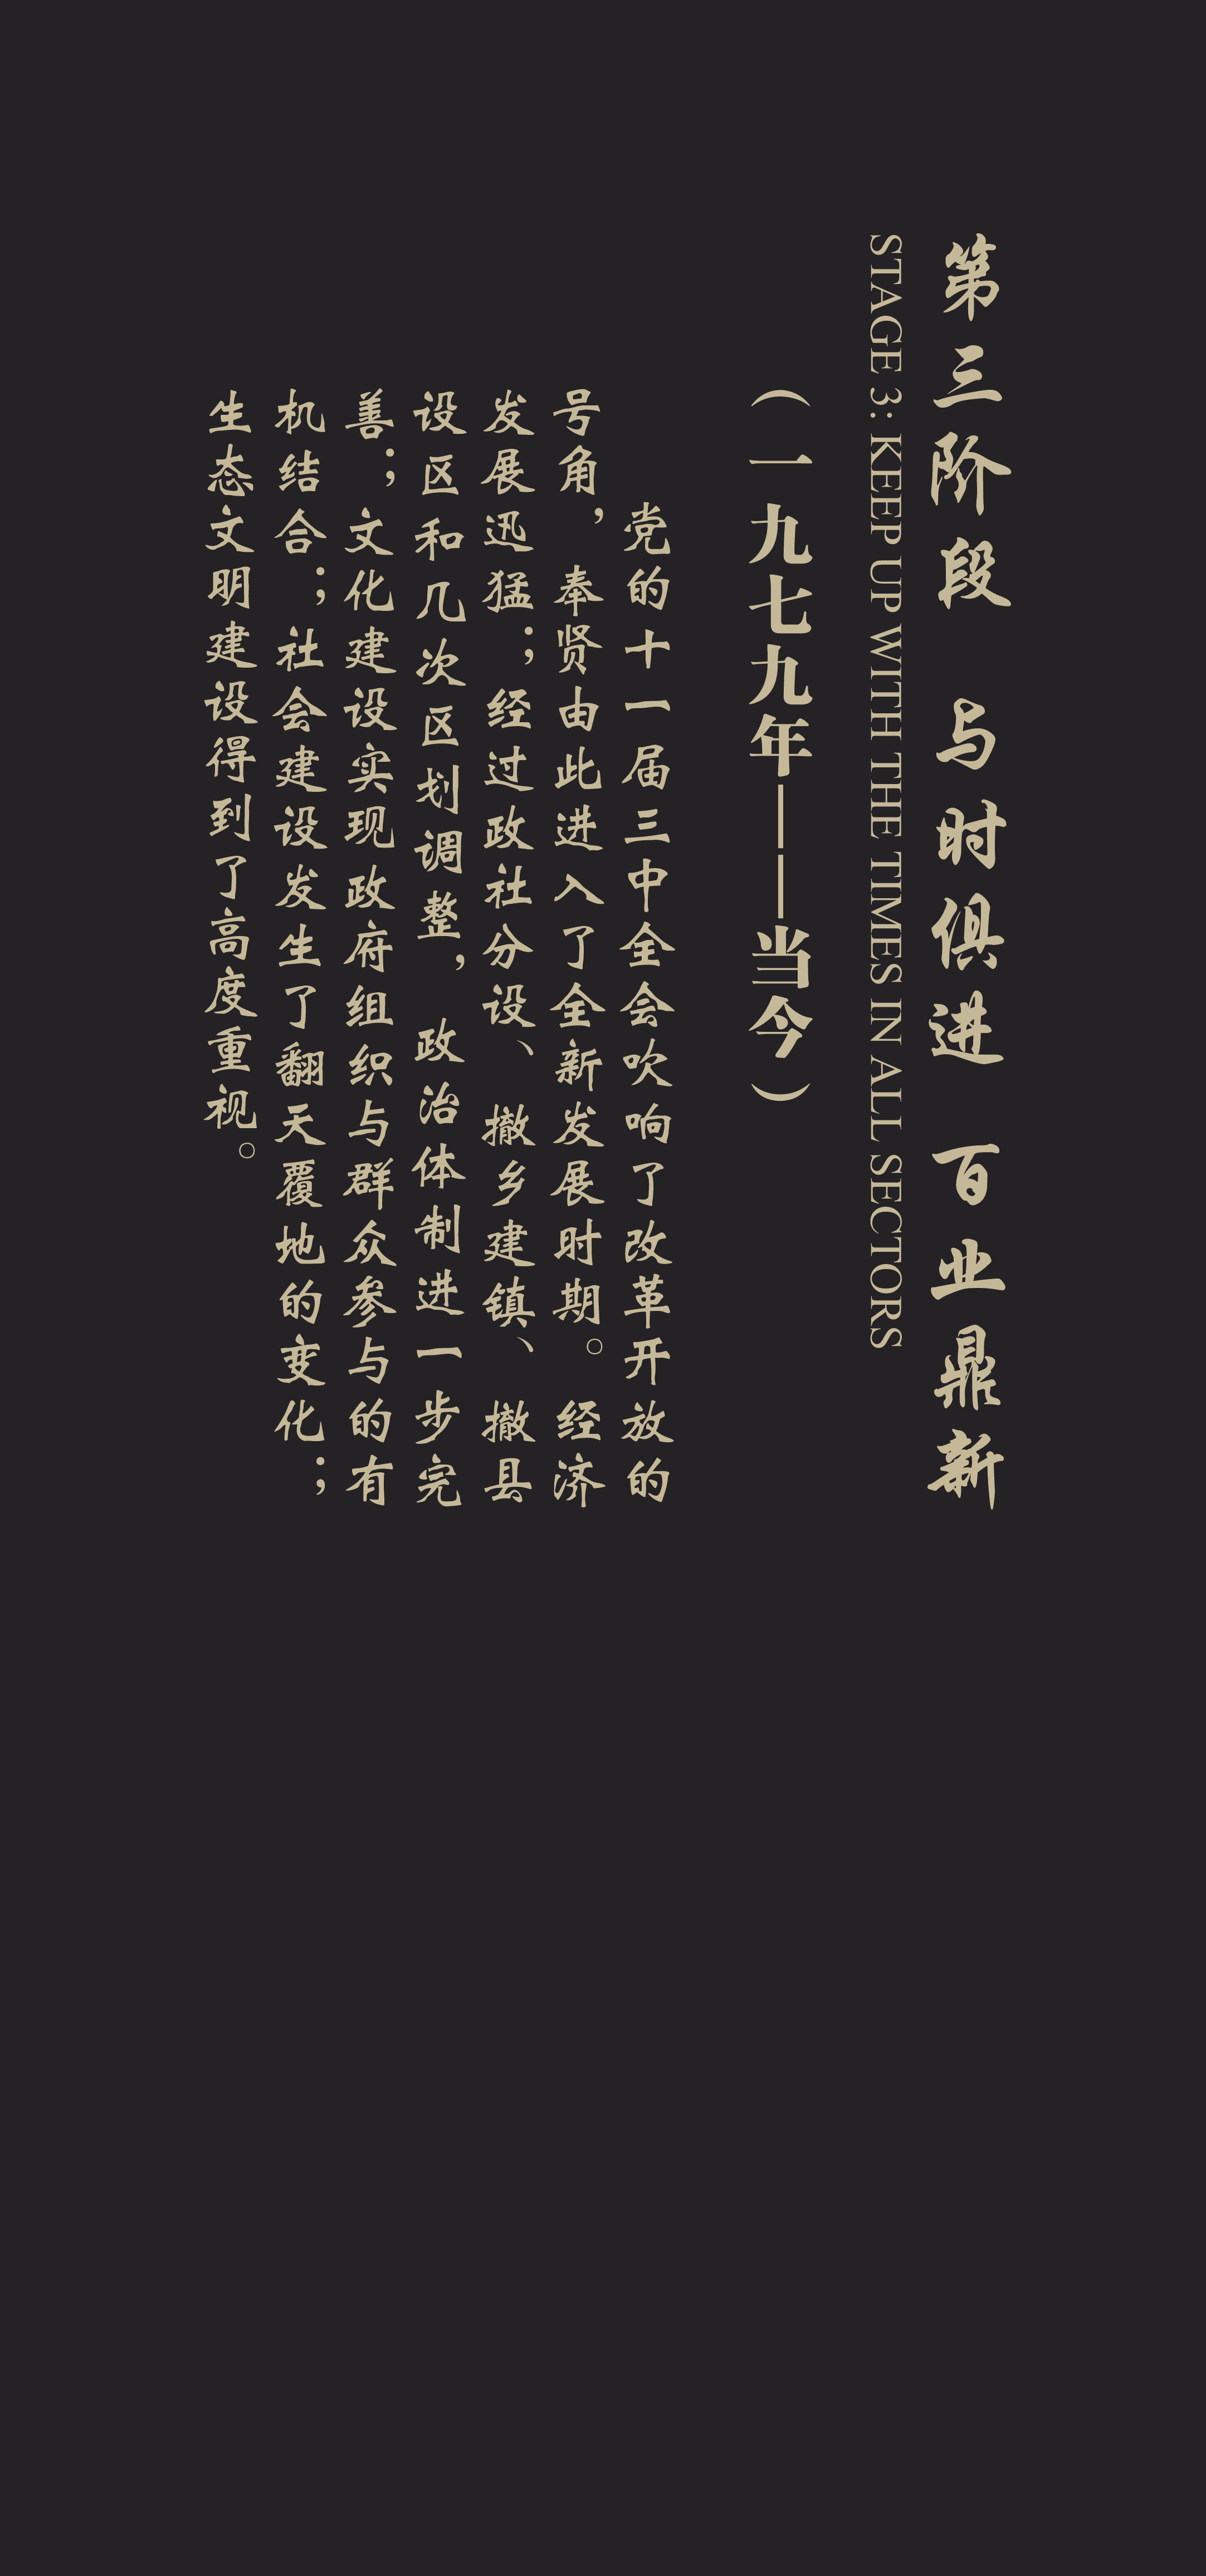 第三阶段 与时俱进 百业鼎新
STAGE 3: KEEP UP WITH THE TIMES IN ALL SECTORS
（一九七九年——当今）
党的十一届三中全会吹响了改革开放的
号角，奉贤由此进入了全新发展时期。经济
发展迅猛；经过政社分设、撤乡建镇、撤县
设区和几次区划调整，政治体制进一步完
善；文化建设实现政府组织与群众参与的有
机结合；社会建设发生了翻天覆地的变化；
生态文明建设得到了高度重视。